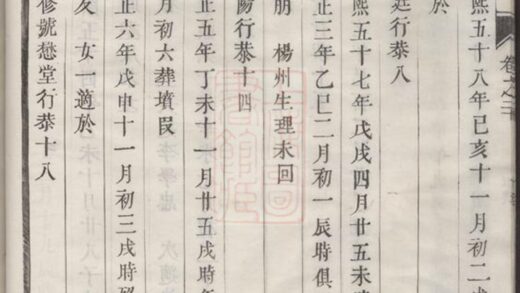 熙五十八年己亥十一月初二戌
於
廷行恭八
熙五十七年戊戌四月廿五未時
正三年乙巳二月初一辰時俱
朋　楊州生理未回
陽行恭十四
正五年丁未十一月廿五戌時
月初六葬墳艮
正六年戊申十一月初三戌時
友　女一適於
修號懋堂行恭十八